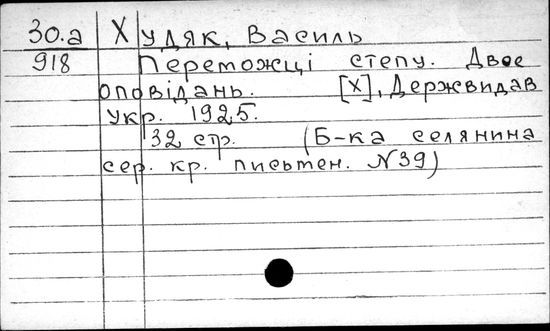 30.а Худяк, Василь
918 Переможці степу. Двоє
оповідань. [Х], Держвидав
Укр. 1925.
32 стр. (Б-ка селянина
сер. кр. письмен. №39)